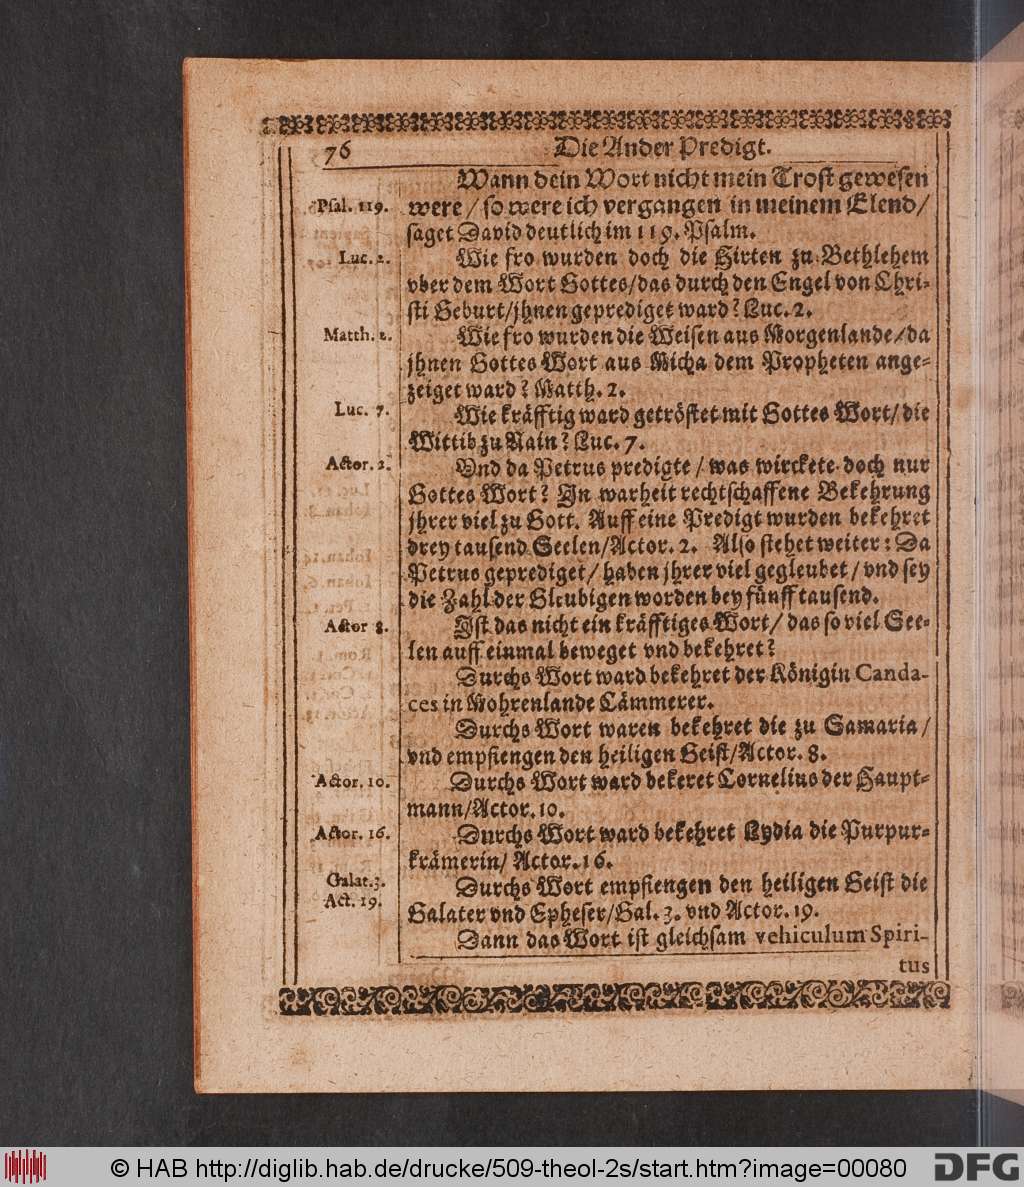 76 Die Ander Predigt.
Wann dein Wort nicht mein Trost gewesen
Psal. 119. were / so were ich vergangen in meinem Elend /
saget David deutlich im 119. Psalm.
Luc. 2. Wie fro wurden doch die Hirten zu Bethlehem
vber dem Wort Gottes / das durch den Engel von Chri-
sti Geburt / jhnen geprediget ward? Luc. 2.
Matth. 2. Wie fro wurden die Weisen aus Morgenlande / da
jhnen Gottes Wort aus Micha dem Propheten ange-
zeiget ward? Matth. 2.
Luc. 7. Wie kräfftig ward getröstet mit Gottes Wort / die
Wittib zu Nain? Luc. 7.
Actor. 2. Vnd da Petrus predigte / was wirckete doch nur
Gottes Wort? In warheit rechtschaffene Bekehrung
jhrer viel zu Gott. Auff eine Predigt wurden bekehret
drey tausend Seelen / Actor. 2. Also stehet weiter: Da
Petrus geprediget / haben jhrer viel gegleubet / vnd sey
die Zahl der Gleubigen worden bey fünff tausend.
Actor 8. Ist das nicht ein kräfftiges Wort / das so viel See-
len auff einmal beweget vnd bekehret?
Durchs Wort ward bekehret der Königin Canda-
ces in Mohrenlande Cämmerer.
Durchs Wort waren bekehret die zu Samaria /
vnd empfiengen den heiligen Geist / Actor. 8.
Actor. 10. Durchs Wort ward bekeret Cornelius der Haupt-
mann / Actor. 10.
Actor. 16. Durchs Wort ward bekehret Lydia die Purpur-
krämerin / Actor. 16.
Galat. 3. Durchs Wort empfiengen den heiligen Geist die
Act. 19. Galater vnd Epheser / Gal. 3. vnd Actor. 19.
Dann das Wort ist gleichsam vehiculum Spiri-
tus
© HAB http://diglib.hab.de/drucke/509-theol-2s/start.htm?image=00080 DFG